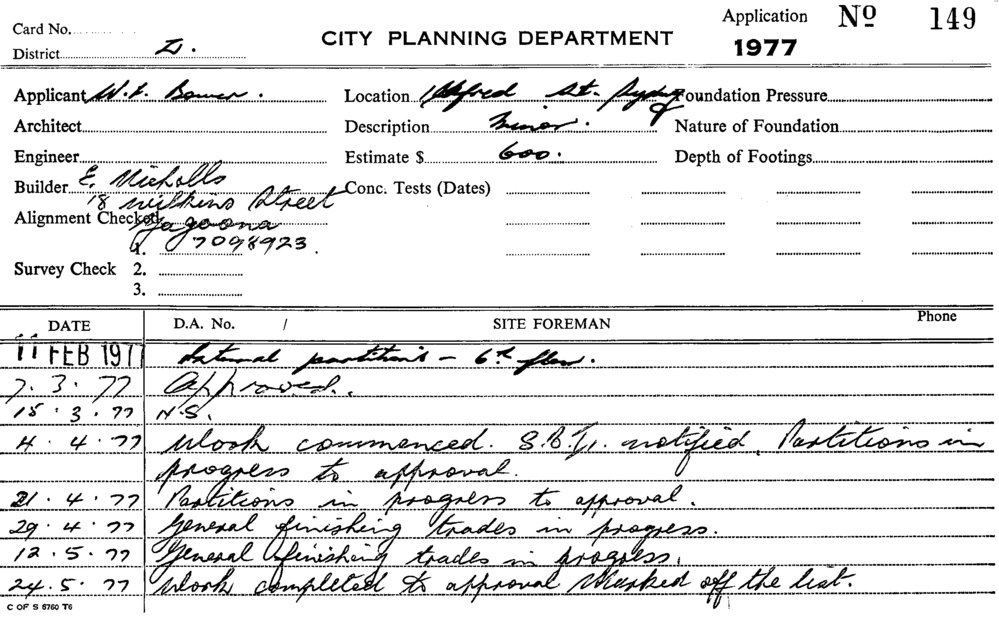 Card No.
District I.
CITY PLANNING DEPARTMENT
Application No 149
1977
Applicant W. L. Bower.
Location 1 Alfred St. Sydney
Foundation Pressure
Architect
Description Minor.
Nature of Foundation
Engineer
Estimate $ 600.
Depth of Footings
Builder E. Nicholls
18 Wilkins Street
Conc. Tests (Dates)
Alignment Checked Yagoona
1. 7098923.
Survey Check 2.
3.
DATE D.A. No. / SITE FOREMAN Phone
11 FEB 1977 Internal partitions - 6th floor.
7. 3. 77 Approved.
15. 3. 77 N.S.
4. 4. 77 Work commenced. notified, Partitions in
progress to approval.
21. 4. 77 Partitions in progress to approval.
29. 4. 77 General finishing trades in progress.
12. 5. 77 General finishing trades in progress.
24. 5. 77 Work completed to approval Marked off the list.
C OF S 6760 T6